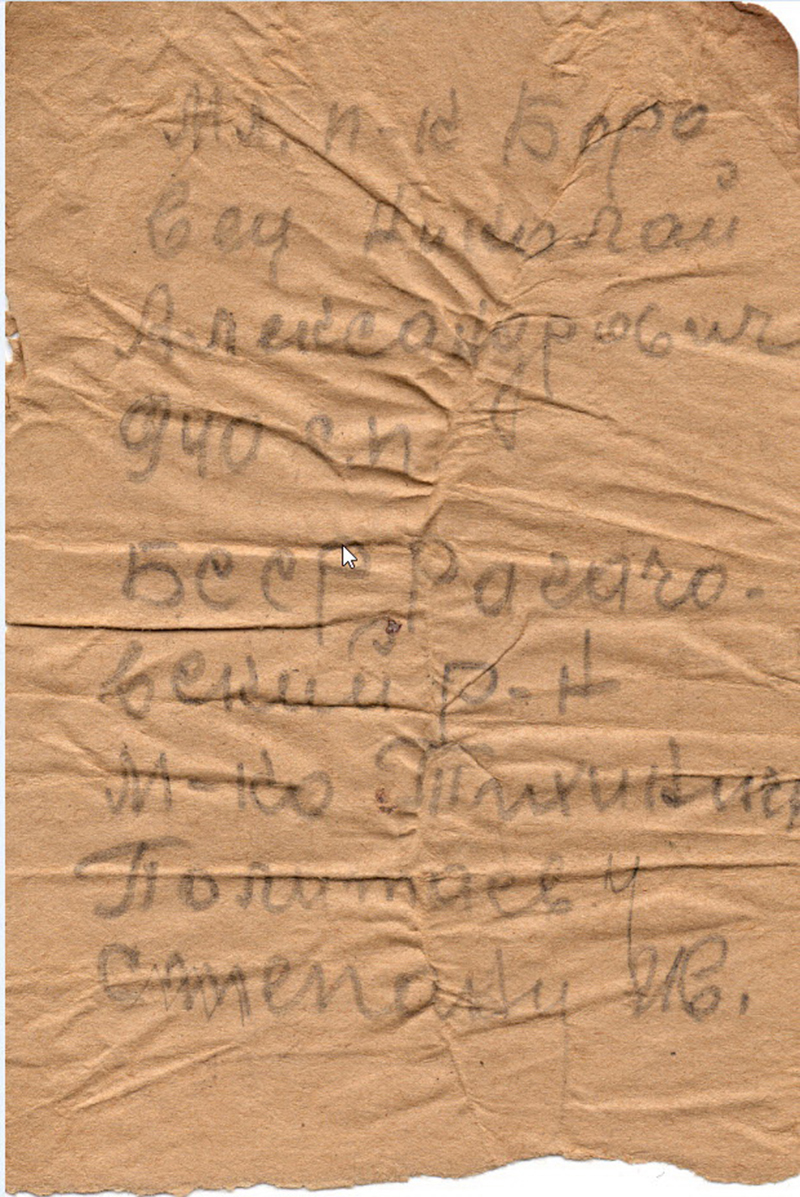 Мл. п-к Боро
вец Николай
Александрович
940 с.п
БССР Рагачо-
вский р-н
М-ко Тихиничи
Политаеву
Степану Ив.